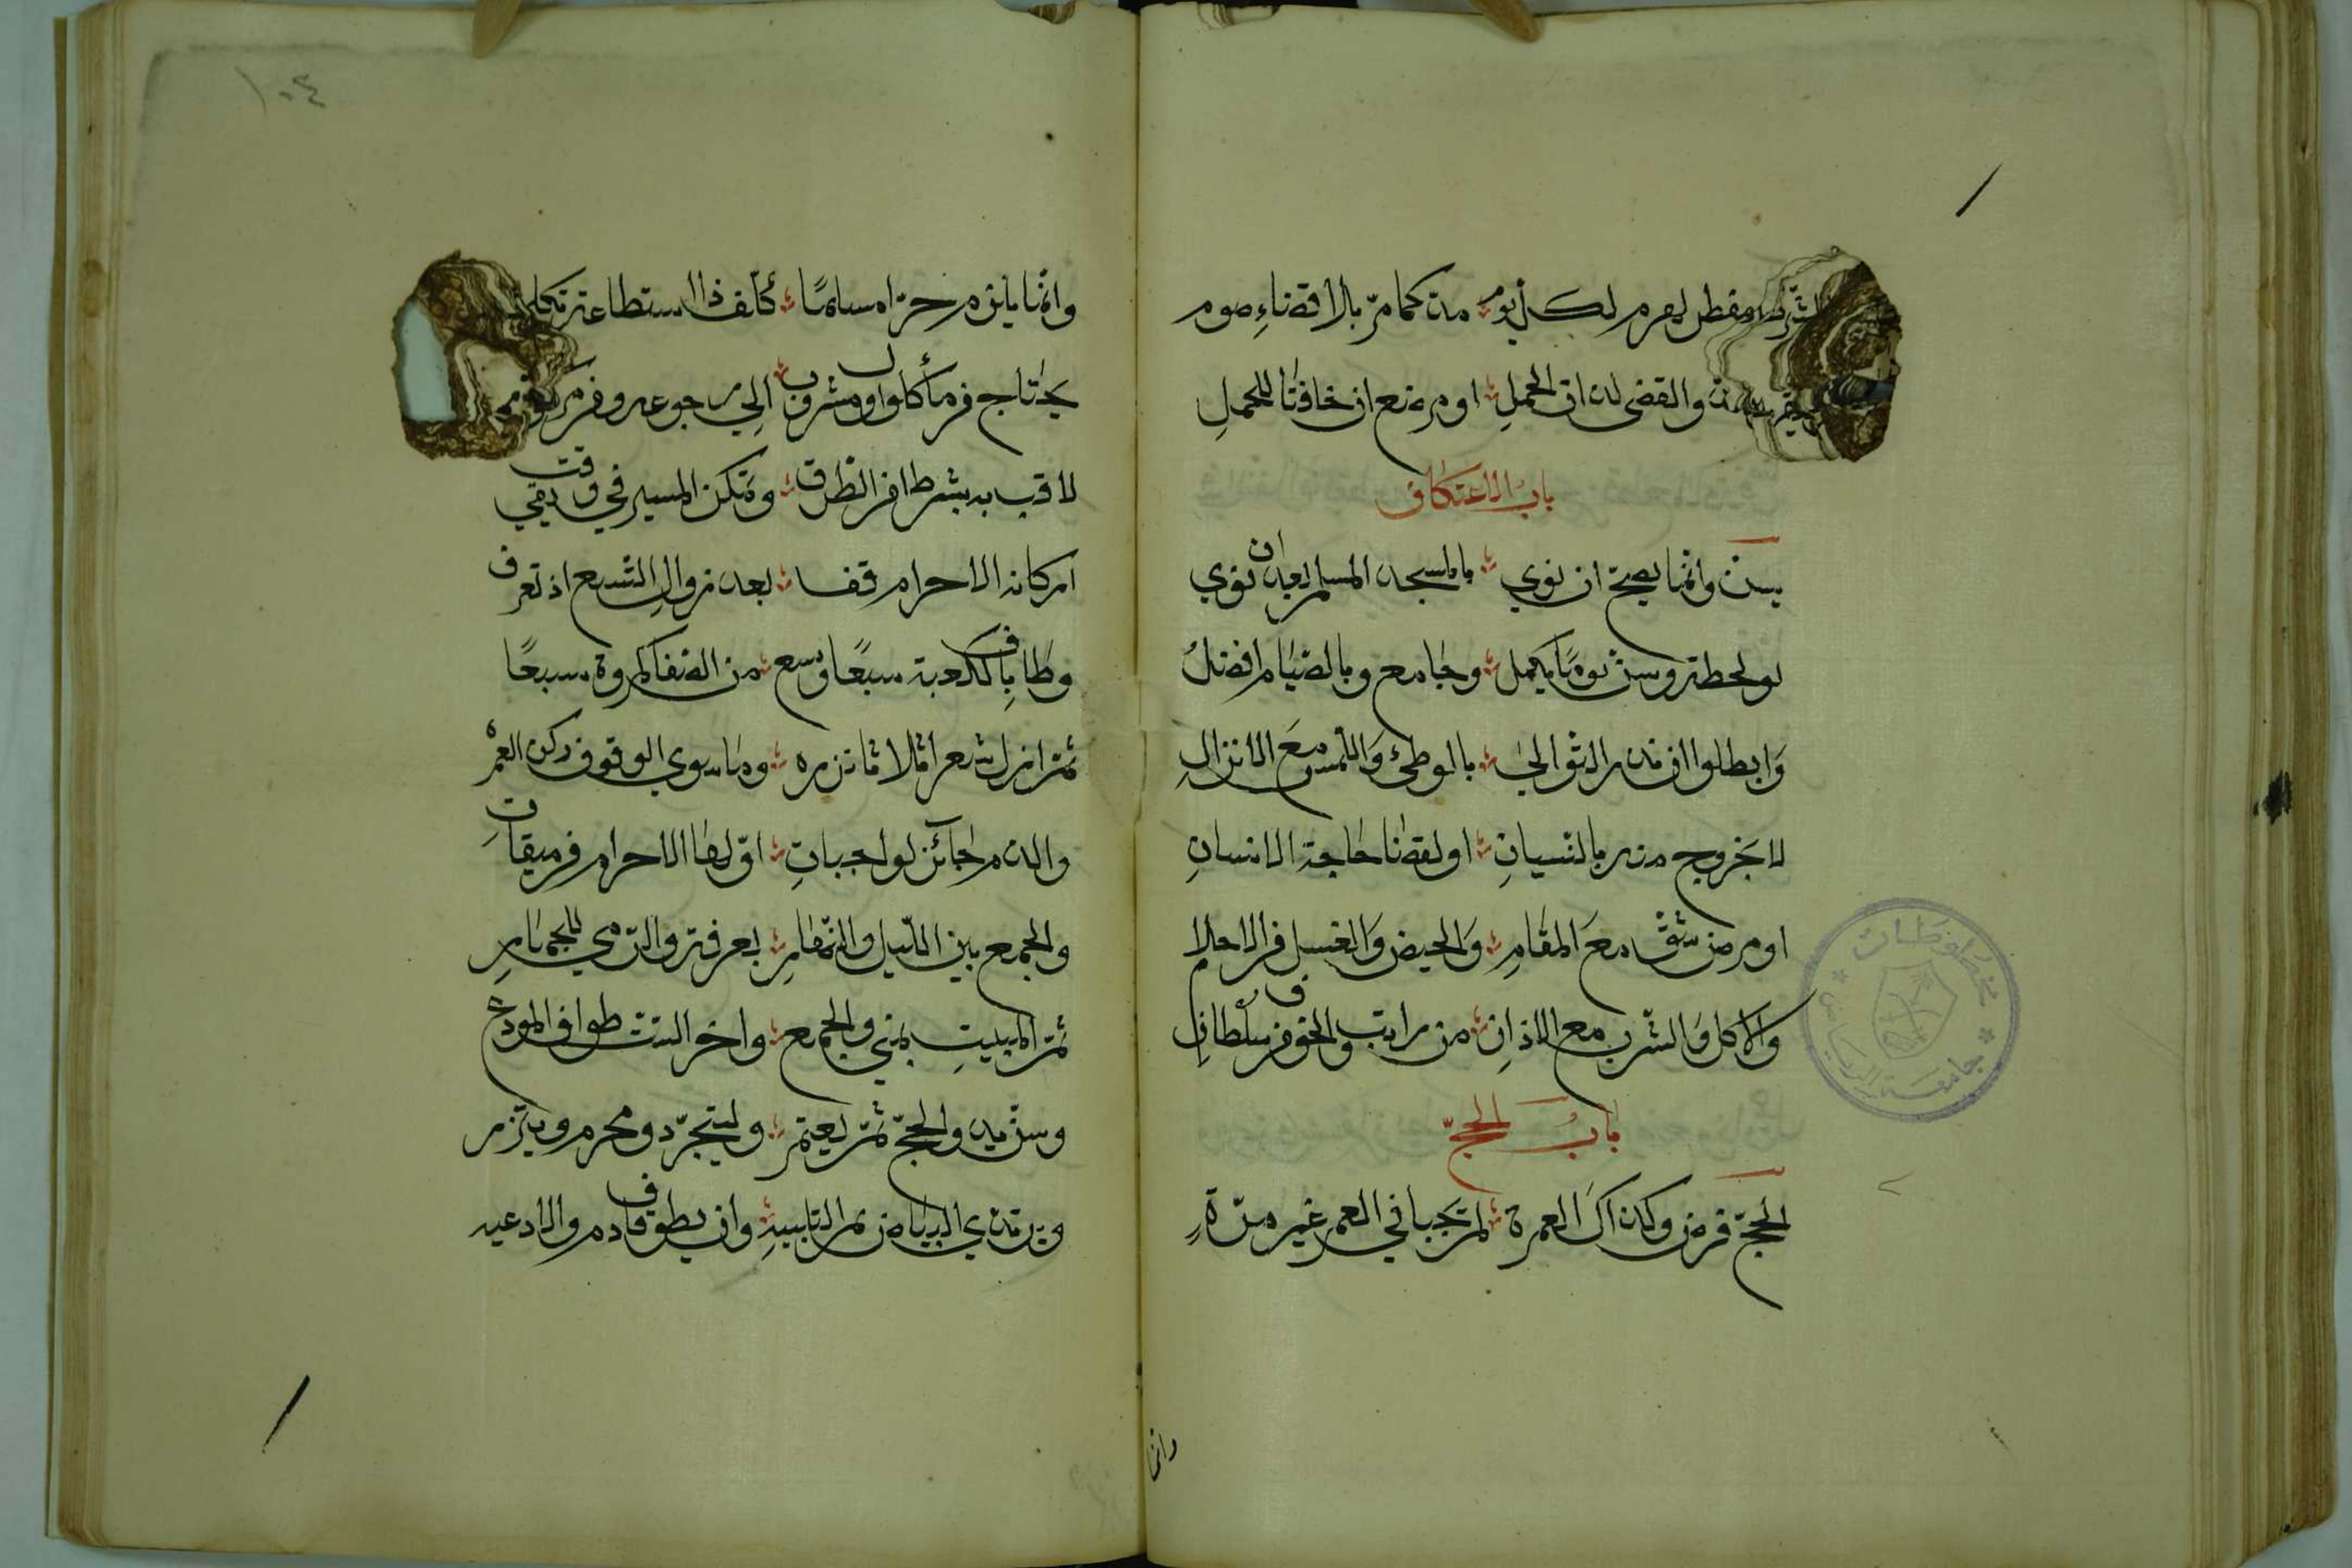 الشرط ومفطر لهرم لكل يوم مد كما مر بلا قضاء صوم
والمد والقضى لذات الحمل او مرضع ان خافتا للحمل
باب الاعتكاف
يسن وانما يصح ان نوي بالمسجد المسلم بعد ان نوي
لو لحظة وسن يوما يكمل وجامع وبالصيام افضل
وابطلوا ان نذر التوالي بالوطئ واللمس مع الانزال
لا بخروج منه بالنسيان او لقضا حاجة الانسان
او مرض شق مع المقام والحيض والغسل من الاحلام
والاكل والشرب مع الاذان من راتب والخوف من سلطان
باب الحج
الحج فرض وكذاك العمرة لم يجبا في العمر غير مرة
وانما
١٠٤
وانما يلزم حرا مسلما كلف ذا استطاعة
يحتاج من مأكول او مشروب الي رجوعه ومن مركوب
لاق به بشرط امن الطرق ويمكن المسير في وقت بقي
اركانه الاحرام قفا بعد زوال التسع اذ تعرف
وطاف بالكعبة سبعا وسع من الصفا لمروة سبعا
ثم ازل شعرا ثلاثا نزره وما سوي الوقوف ركن العمره
والدم جابر لواجبات اولها الاحرام من ميقات
والجمع بين الليل والنهار بعرفة والرمي للجمار
ثم المبيت بمني والجمع واخر الست طواف المودع
وسن بدء الحج ثم يعتمر وليتجرد محرم ويتزر
ويرتدي البياض ثم التلبيه وان يطوف قادم والادعيه
مخطوطات
جامعة الرياض